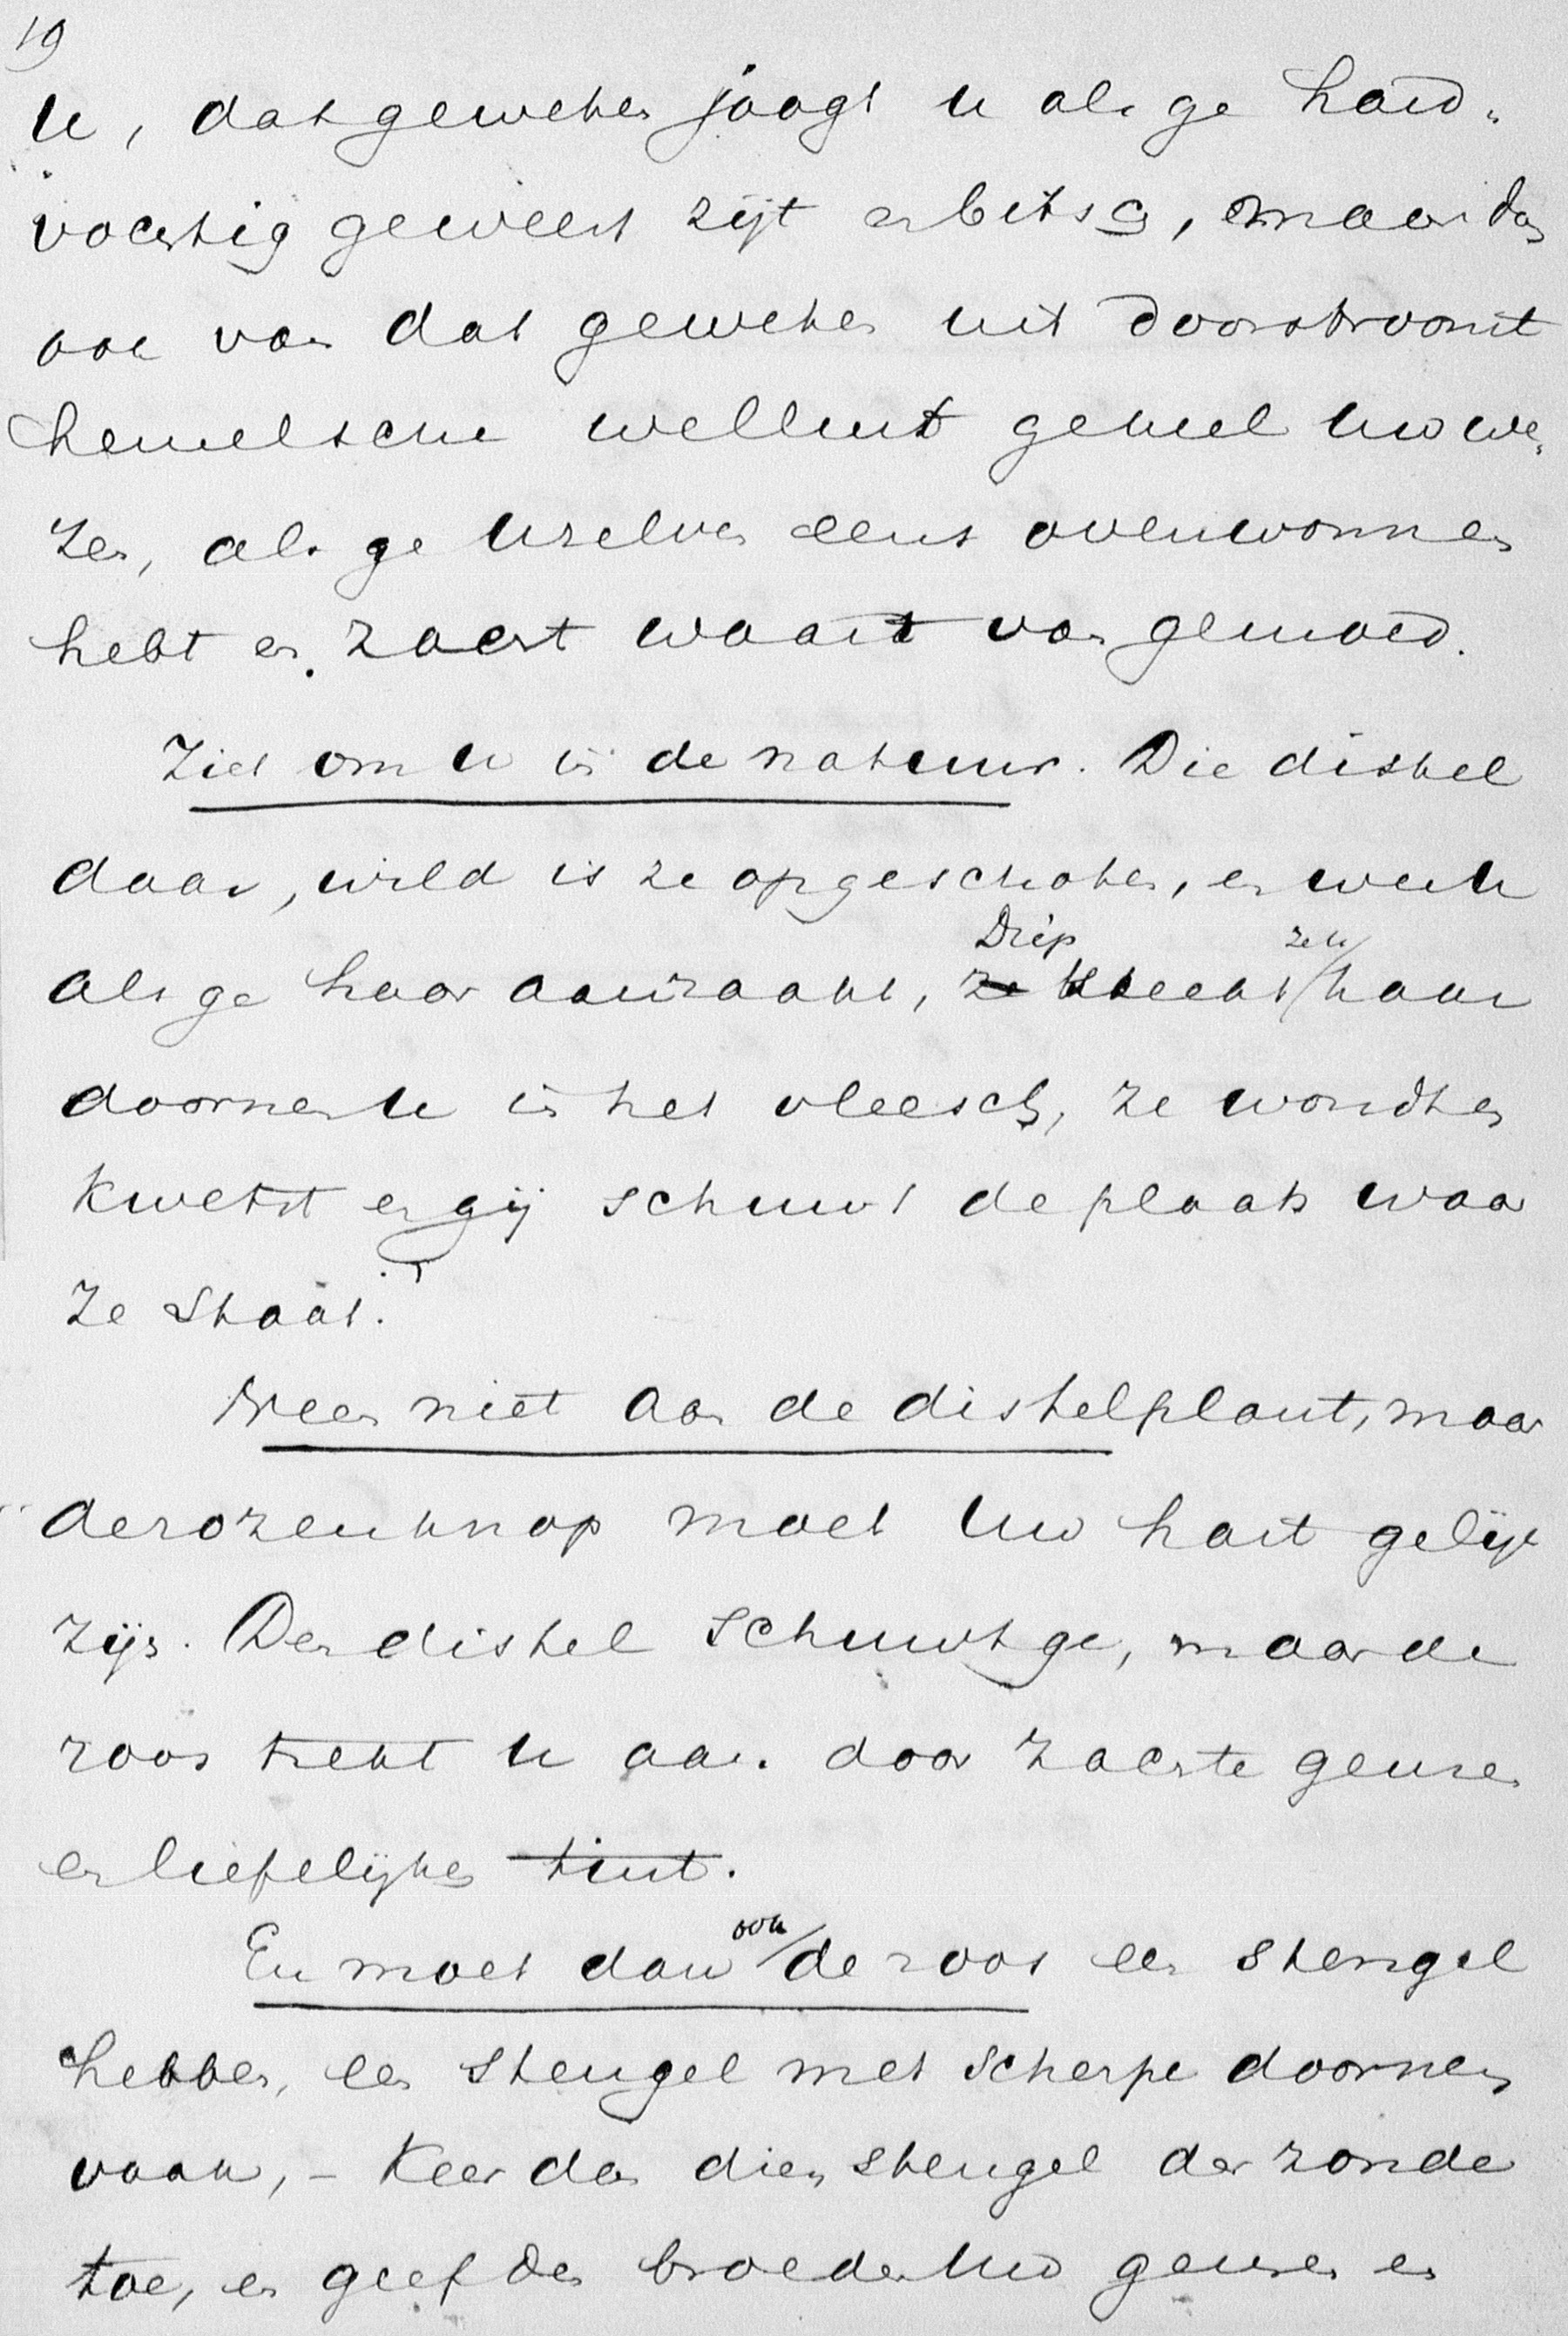 19
u, dat geweten jaagt u als ge hard-
vochtig geweest zijt en bitsch, maar dan
ook van dat geweten uit doorstroomt
hemelsche wellust geheel uw we-
zen, als ge uzelven eens overwonnen
hebt en zacht waart van gemoed.
Ziet om u in de natuur. Die distel
daar, wild is ze opgeschoten, en wee u
als ge haar aanraakt, Diep steekt ze u haar
doornen in het vleesch, ze wondt en
kwetst en gij schuwt de plaats waar
ze staat.
Neen niet aan de distelplant, maar
de rozenknop moet uw hart gelijk
zijn. Den distel schuwt ge, maar de
roos trekt u aan door zachte geuren
en liefelijken tint.
En moet dan ook de roos een stengel
hebben, een stengel met scherpe doornen
vaak, - Keer dan dien stengel der zonde
toe, en geef den broeder uw geuren en